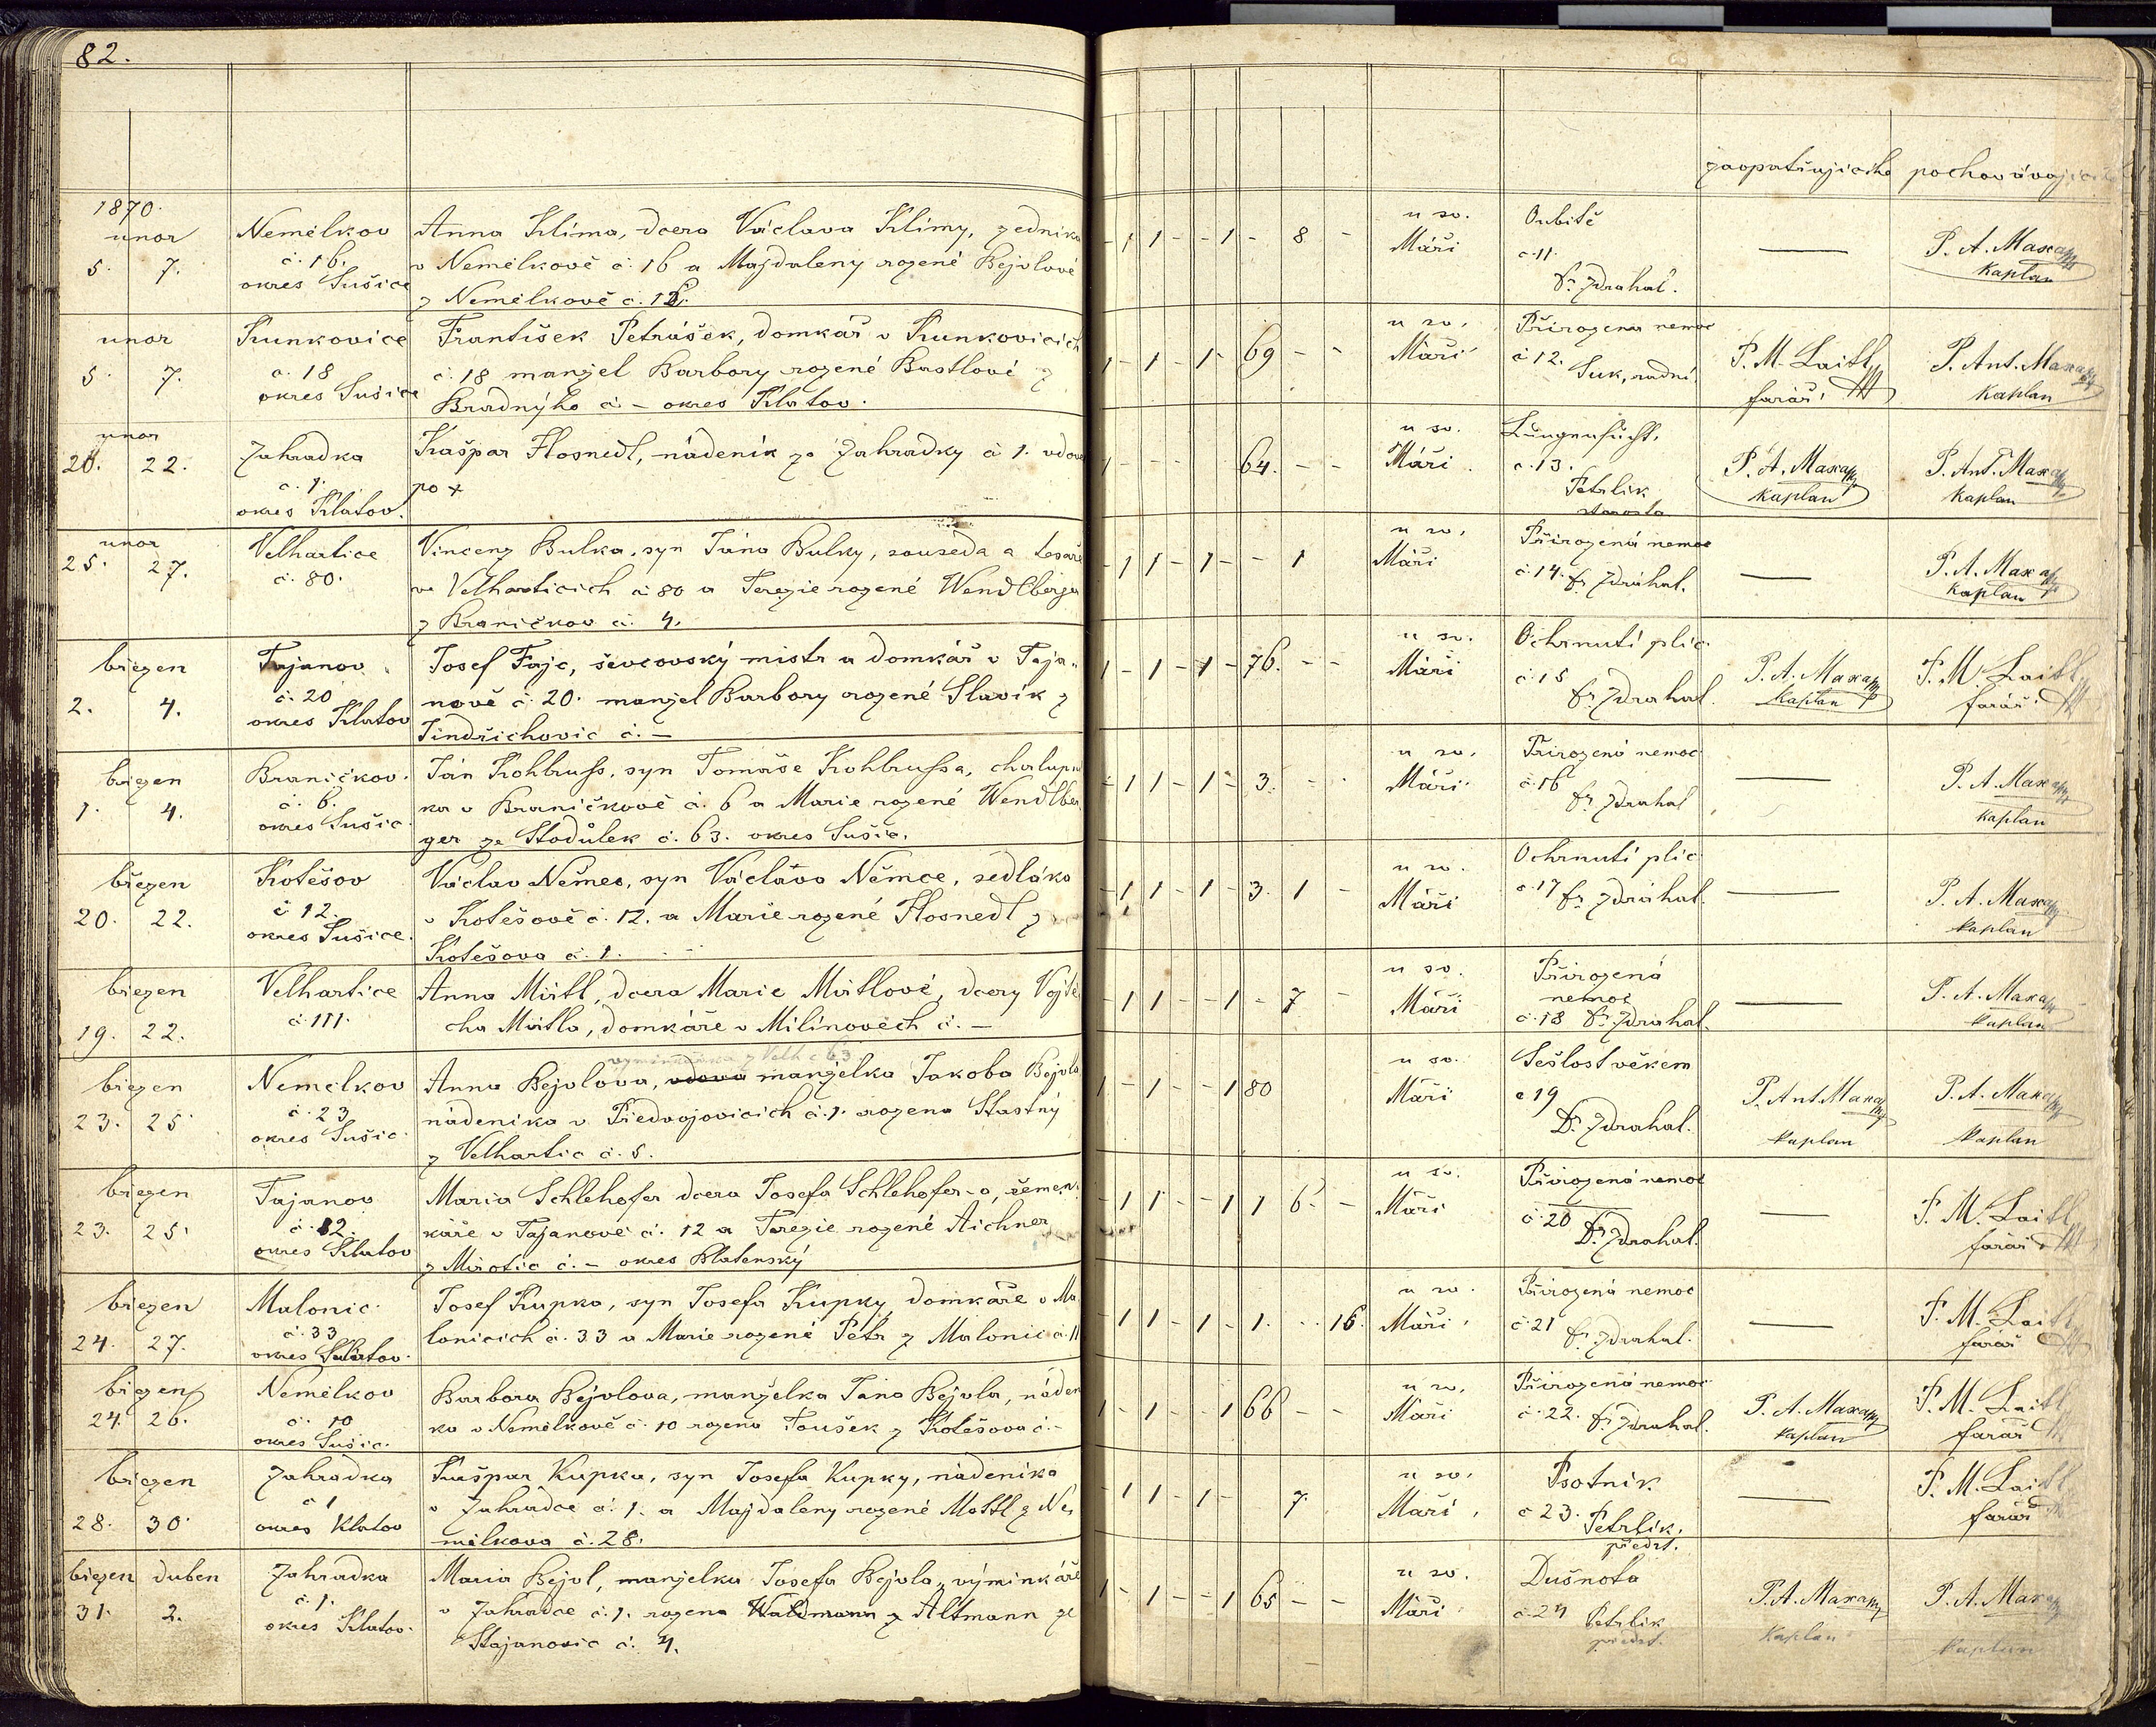 82.
zaopatřujícího pochovávajícího
1870
unor
5. 7.
Nemelkov
č. 16.
okres Sušice
Anna Klíma, dcera Václava Klímy, zedníka
v Nemělkově č. 16 a Majdaleny rozené Bejvlové
z Nemělkově č.
- 1 1 - - 1 - 8 -
u sv.
Máři
Oubitě
č 11.
Dr Zdrahal.
—
P. A. Maxa
Kaplan
unor
5. 7.
Kunkovice
č. 18
okres Sušice
František Petrášek, domkář v Kunkovicích
č. 18 manžel Barbory rozené Bastlové z
Bradnýho č - okres Klatov.
1 - 1 - 1 - 69 - -
u sv.
Máři
Přirozena nemoc
č 12.
Suk, radní
P. M. Laitl
farář
P. Ant. Maxa
Kaplan
unor
20. 22.
Zahradka
č. 1.
okres Klatov.
Kašpar Hosnedl, nádeník ze Zahradky č 1. vdovec
po +
1 - - - 64. - -
u sv.
Máři
Lungensucht.
č. 13.
Petrlik
starosta
P. A. Maxa
Kaplan
P. Ant. Maxa
Kaplan
unor
25. 27.
Velhartice
č. 80.
Vincenz Bulka, syn Jána Bulky, souseda a tesaře
ve Velharticích č 80 a Terezie rozené Wendlberger
z Braničkov č. 4.
- 1 1 - 1 - - 1
u sv.
Máři
Přirozená nemoc
č. 14. Dr Zdráhal.
—
P. A. Maxa
Kaplan
březen
2. 4.
Tajanov
č. 20
okres Klatov
Josef Fajc, ševcovský mistr a domkář v Taja-
nově č. 20. manžel Barbory rozené Slavík z
Jindřichovic č. —
1 - 1 - 1 - 76. - -
u sv.
Máři
Ochrnutí plic.
č. 15
Dr Zdrahal.
P. A. Maxa
Kaplan
P. M. Laitl
farář
březen
1. 4.
Braničkov.
č. 6.
okres Sušic.
Ján Kohlruss, syn Tomáše Kohlrussa, chalupní
ka v Braničkově č. 6 a Marie rozené Wendlber
ger ze Stodůlek č. 63. okres Sušic.
- 1 1 - 1 - 3. - -
u sv.
Máři
Přirozená nemoc
č. 16
Dr Zdrahal
—
P. A. Maxa
Kaplan
březen
20. 22.
Kotěšov
č 12.
okres Sušice.
Václav Němec, syn Václava Němce, sedláka
v Kotěšově č. 12. a Marie rozené Hosnedl z
Kotěšova č. 1.
- 1 1 - 1 - 3. 1 -
u sv.
Máři
Ochrnutí plic
č. 17 Dr Zdráhal.
—
P. A. Maxa
Kaplan
březen
19. 22.
Velhartice
č. 111.
Anna Mirtl, dcera Marie Mirtlové, dcery Vojtě
cha Mirtla, domkáře v Milínovech č. —
- 1 1 - - 1 - 7 -
u sv.
Máři
Přirozená
nemoc
č. 18 Dr Zdrahal.
—
P. A. Maxa
Kaplan
březen
23. 25
Nemelkov
č. 23
okres Sušic.
vyminkářka z Velh č 63
Anna Bejvlova, vdova manželka Jakoba Bejvla
nádeníka v Předvojovicích č. 1. rozena Štastný
z Velhartic č. 5.
1 - 1 - - 1 80
u sv.
Máři
Sešlost věkem
č 19
Dr Zdrahal.
P. Ant. Maxa
Kaplan
P. A. Maxa
Kaplan
březen
23. 25.
Tajanov
č. 12.
okres Klatov
Maria Schlehofer dcera Josefa Schlehofer-a, řemen-
káře v Tajanově č. 12 a Terezie rozené Aichner
z Mirotic č. - okres Blatenský
- 1 1 - - 1 1 6. -
u sv.
Máři
Přirozená nemoc
č. 20 Dr Zdrahal.
—
P. M. Laitl
farář
březen
24. 27.
Malonic.
č. 33
okres Klatov.
Josef Kupka, syn Josefa Kupky, domkáře v Ma
lonicích č. 33 a Marie rozené Petr z Malonic č. 11
- 1 1 - 1 - 1. - - 16.
u sv.
Máři.
Přirozená nemoc
č. 21 Dr Zdrahal.
—
P. M. Laitl
farář
březen
24. 26.
Nemělkov
č. 10
okres Sušic.
Barbora Bejvlova, manželka Jána Bejvla, náden
ka v Nemělkově č. 10 rozena Toušek z Kotěšova č. -
1 - 1 - - 1 66 - -
u sv.
Máři
Přirozená nemoc
č. 22. Dr Zdrahal.
P. A. Maxa
Kaplan
P. M. Laitl
farář
březen
28. 30.
Zahradka
č 1
okres Klatov
Kašpar Kupka, syn Josefa Kupky, nádeníka
v Zahrádce č. 1. a Majdaleny rozené Mottl z Ne-
mělkova č. 28.
- 1 1 - 1 - 7.
u sv.
Máři.
Psotník
č 23. Petrlík.
předst.
—
P. M. Laitl
farář
březen duben
31. 2.
Zahradka
č. 1.
okres Klatov.
Maria Bejvl, manželka Josefa Bejvla, výminkáře
v Zahradce č. 1. rozena Waldmann z Altmann ze
Stajanovic č. 4.
1 - 1 - - 1 65 - -
u sv.
Máři
Dušnota
č. 24 Petrlik
předst.
P. A. Maxa
Kaplan
P. A. Maxa
Kaplan